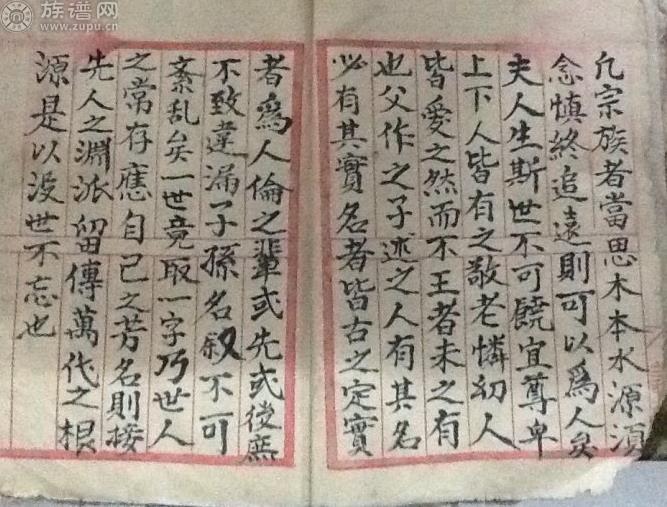 族谱网
www.zupu.cn
凡宗族者當思木本水源須
念慎終追遠則可以爲人矣
夫人生斯世不可饒宜尊卑
上下人皆有之敬老憐幼人
皆愛之然而不王者未之有
也父作之子述之人有其名
必有其實名者皆古之定實
者爲人倫之輩或先或後無
不致違漏子孫名叙不可
紊乱矣一世竟取一字乃世人
之常存應自己之芳名則接
先人之淵派留傳萬代之根
源是以没世不忘也